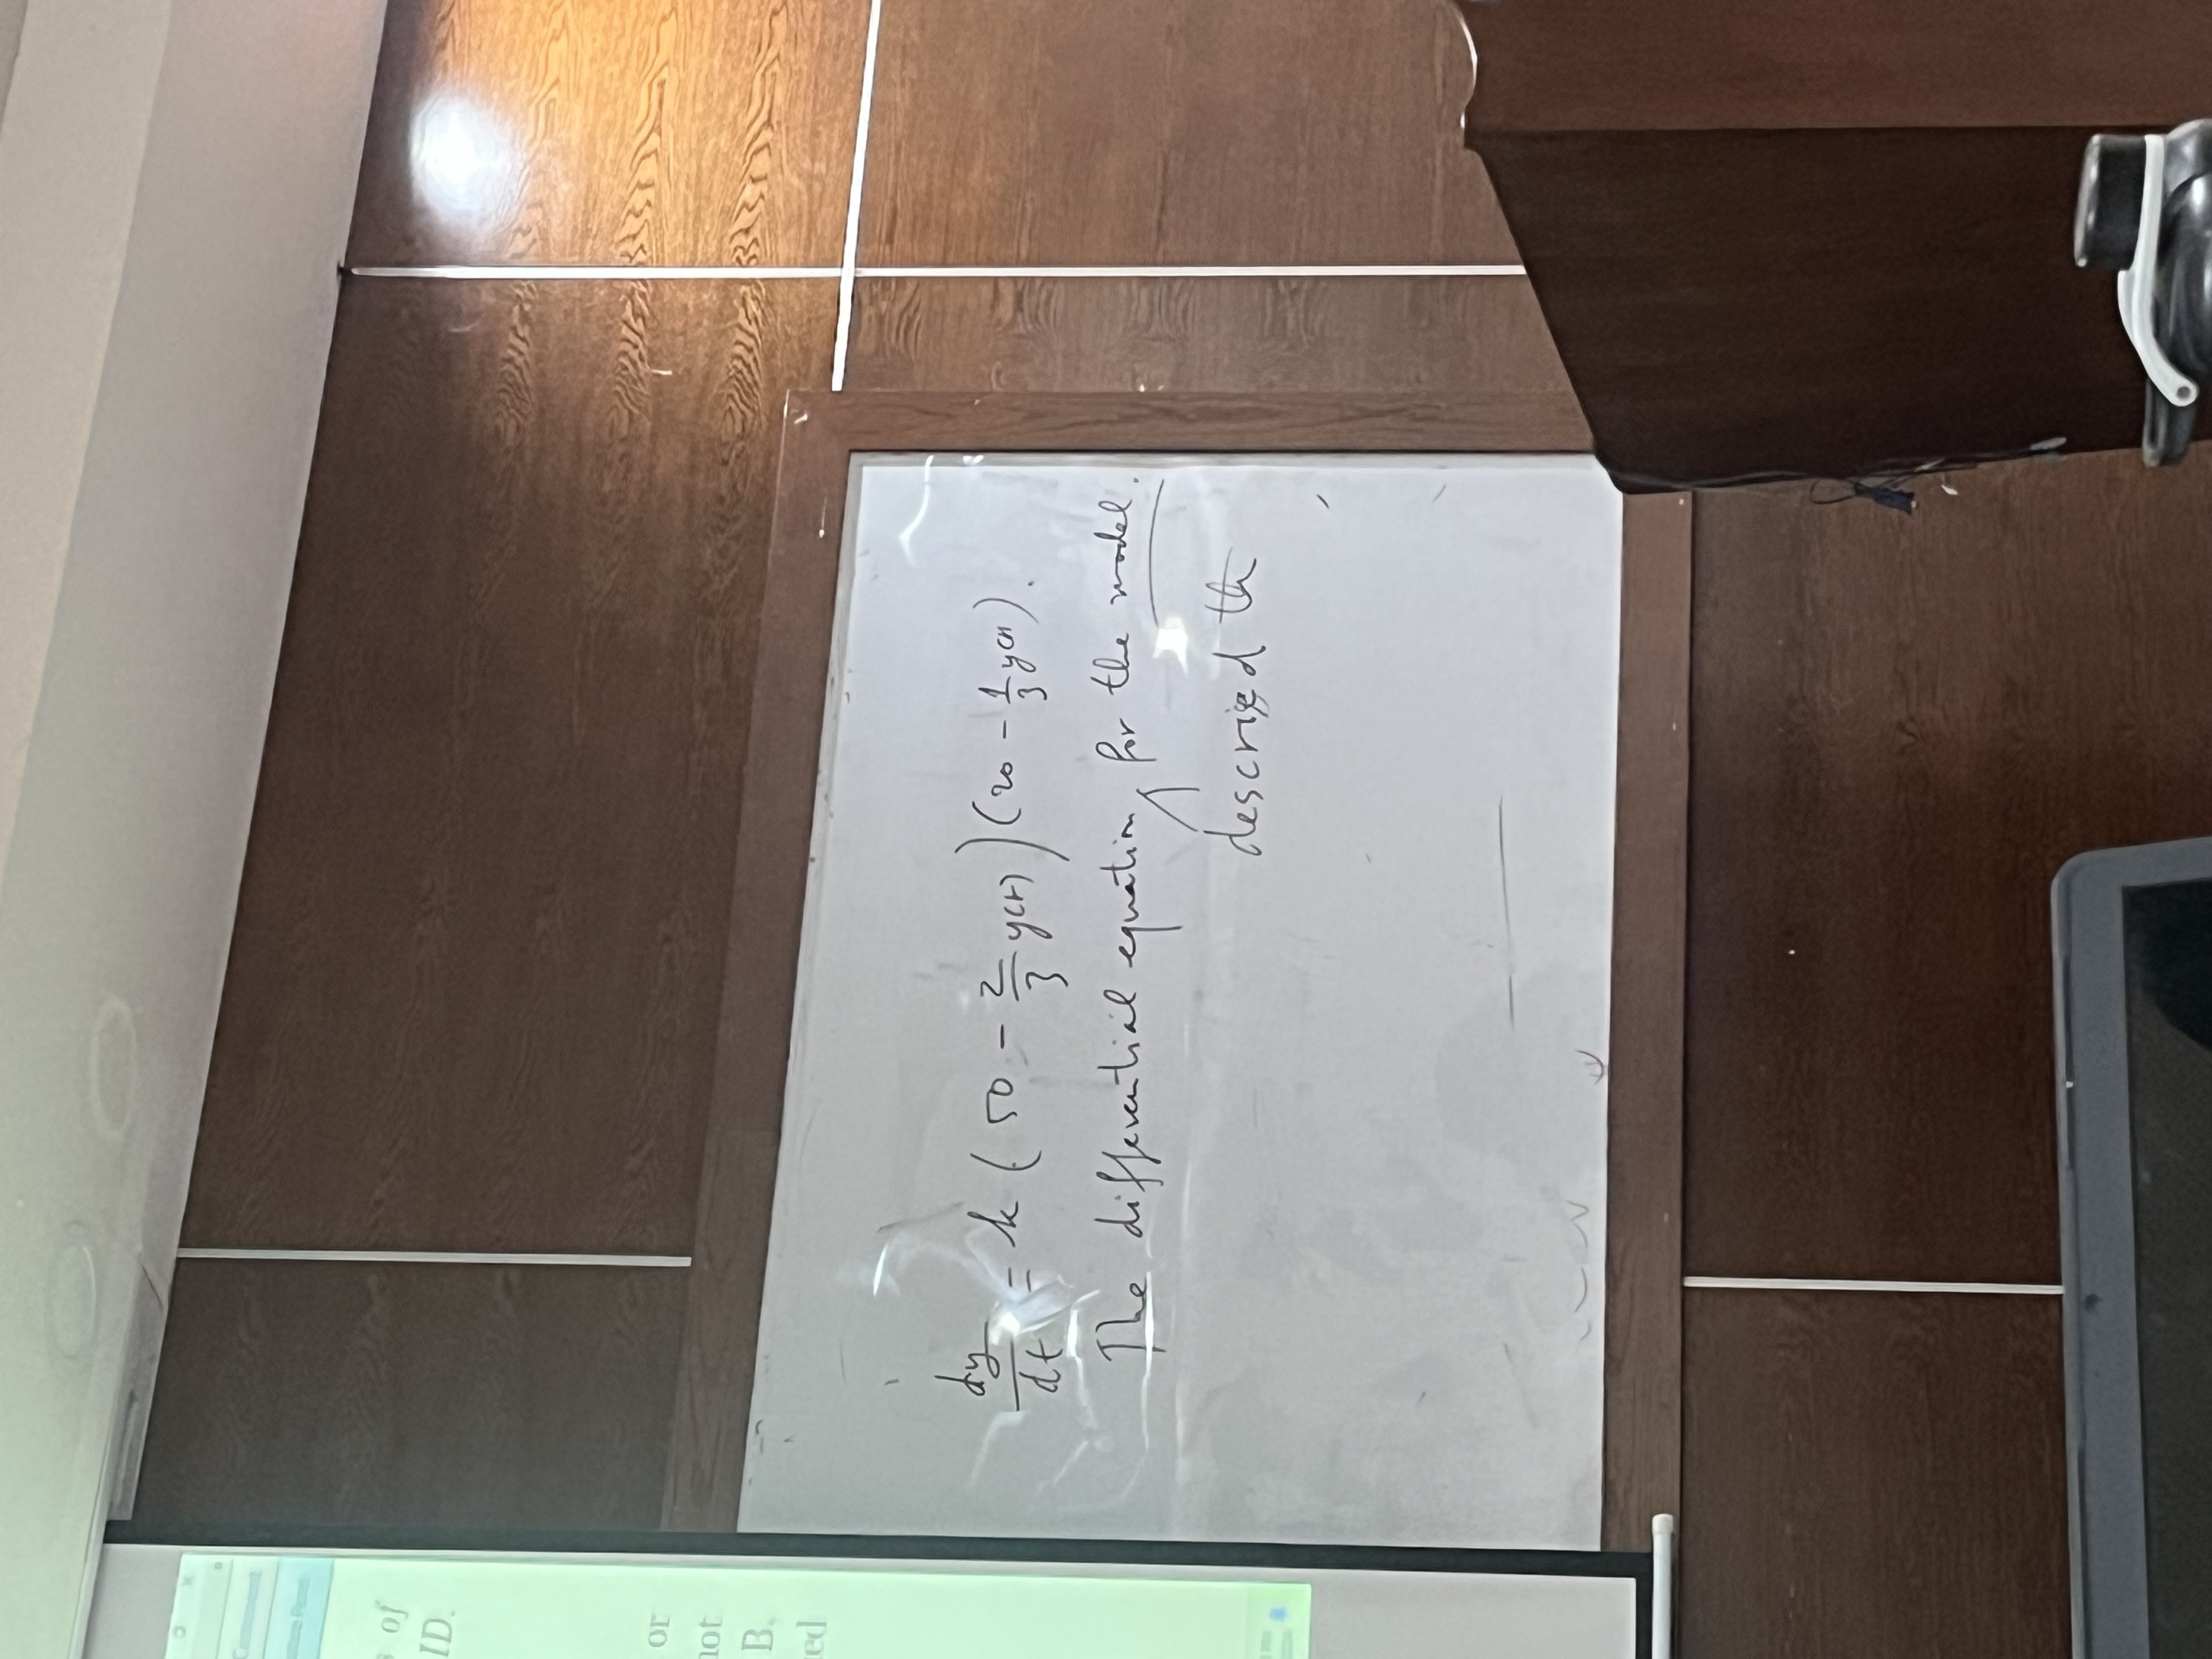 Comment
s of
ID.
or
not
B.
ed
dy/dt = k ( 50 - 2/3 y(t) ) ( 20 - 1/3 y(t) ).
The differential equation for the model.
described th